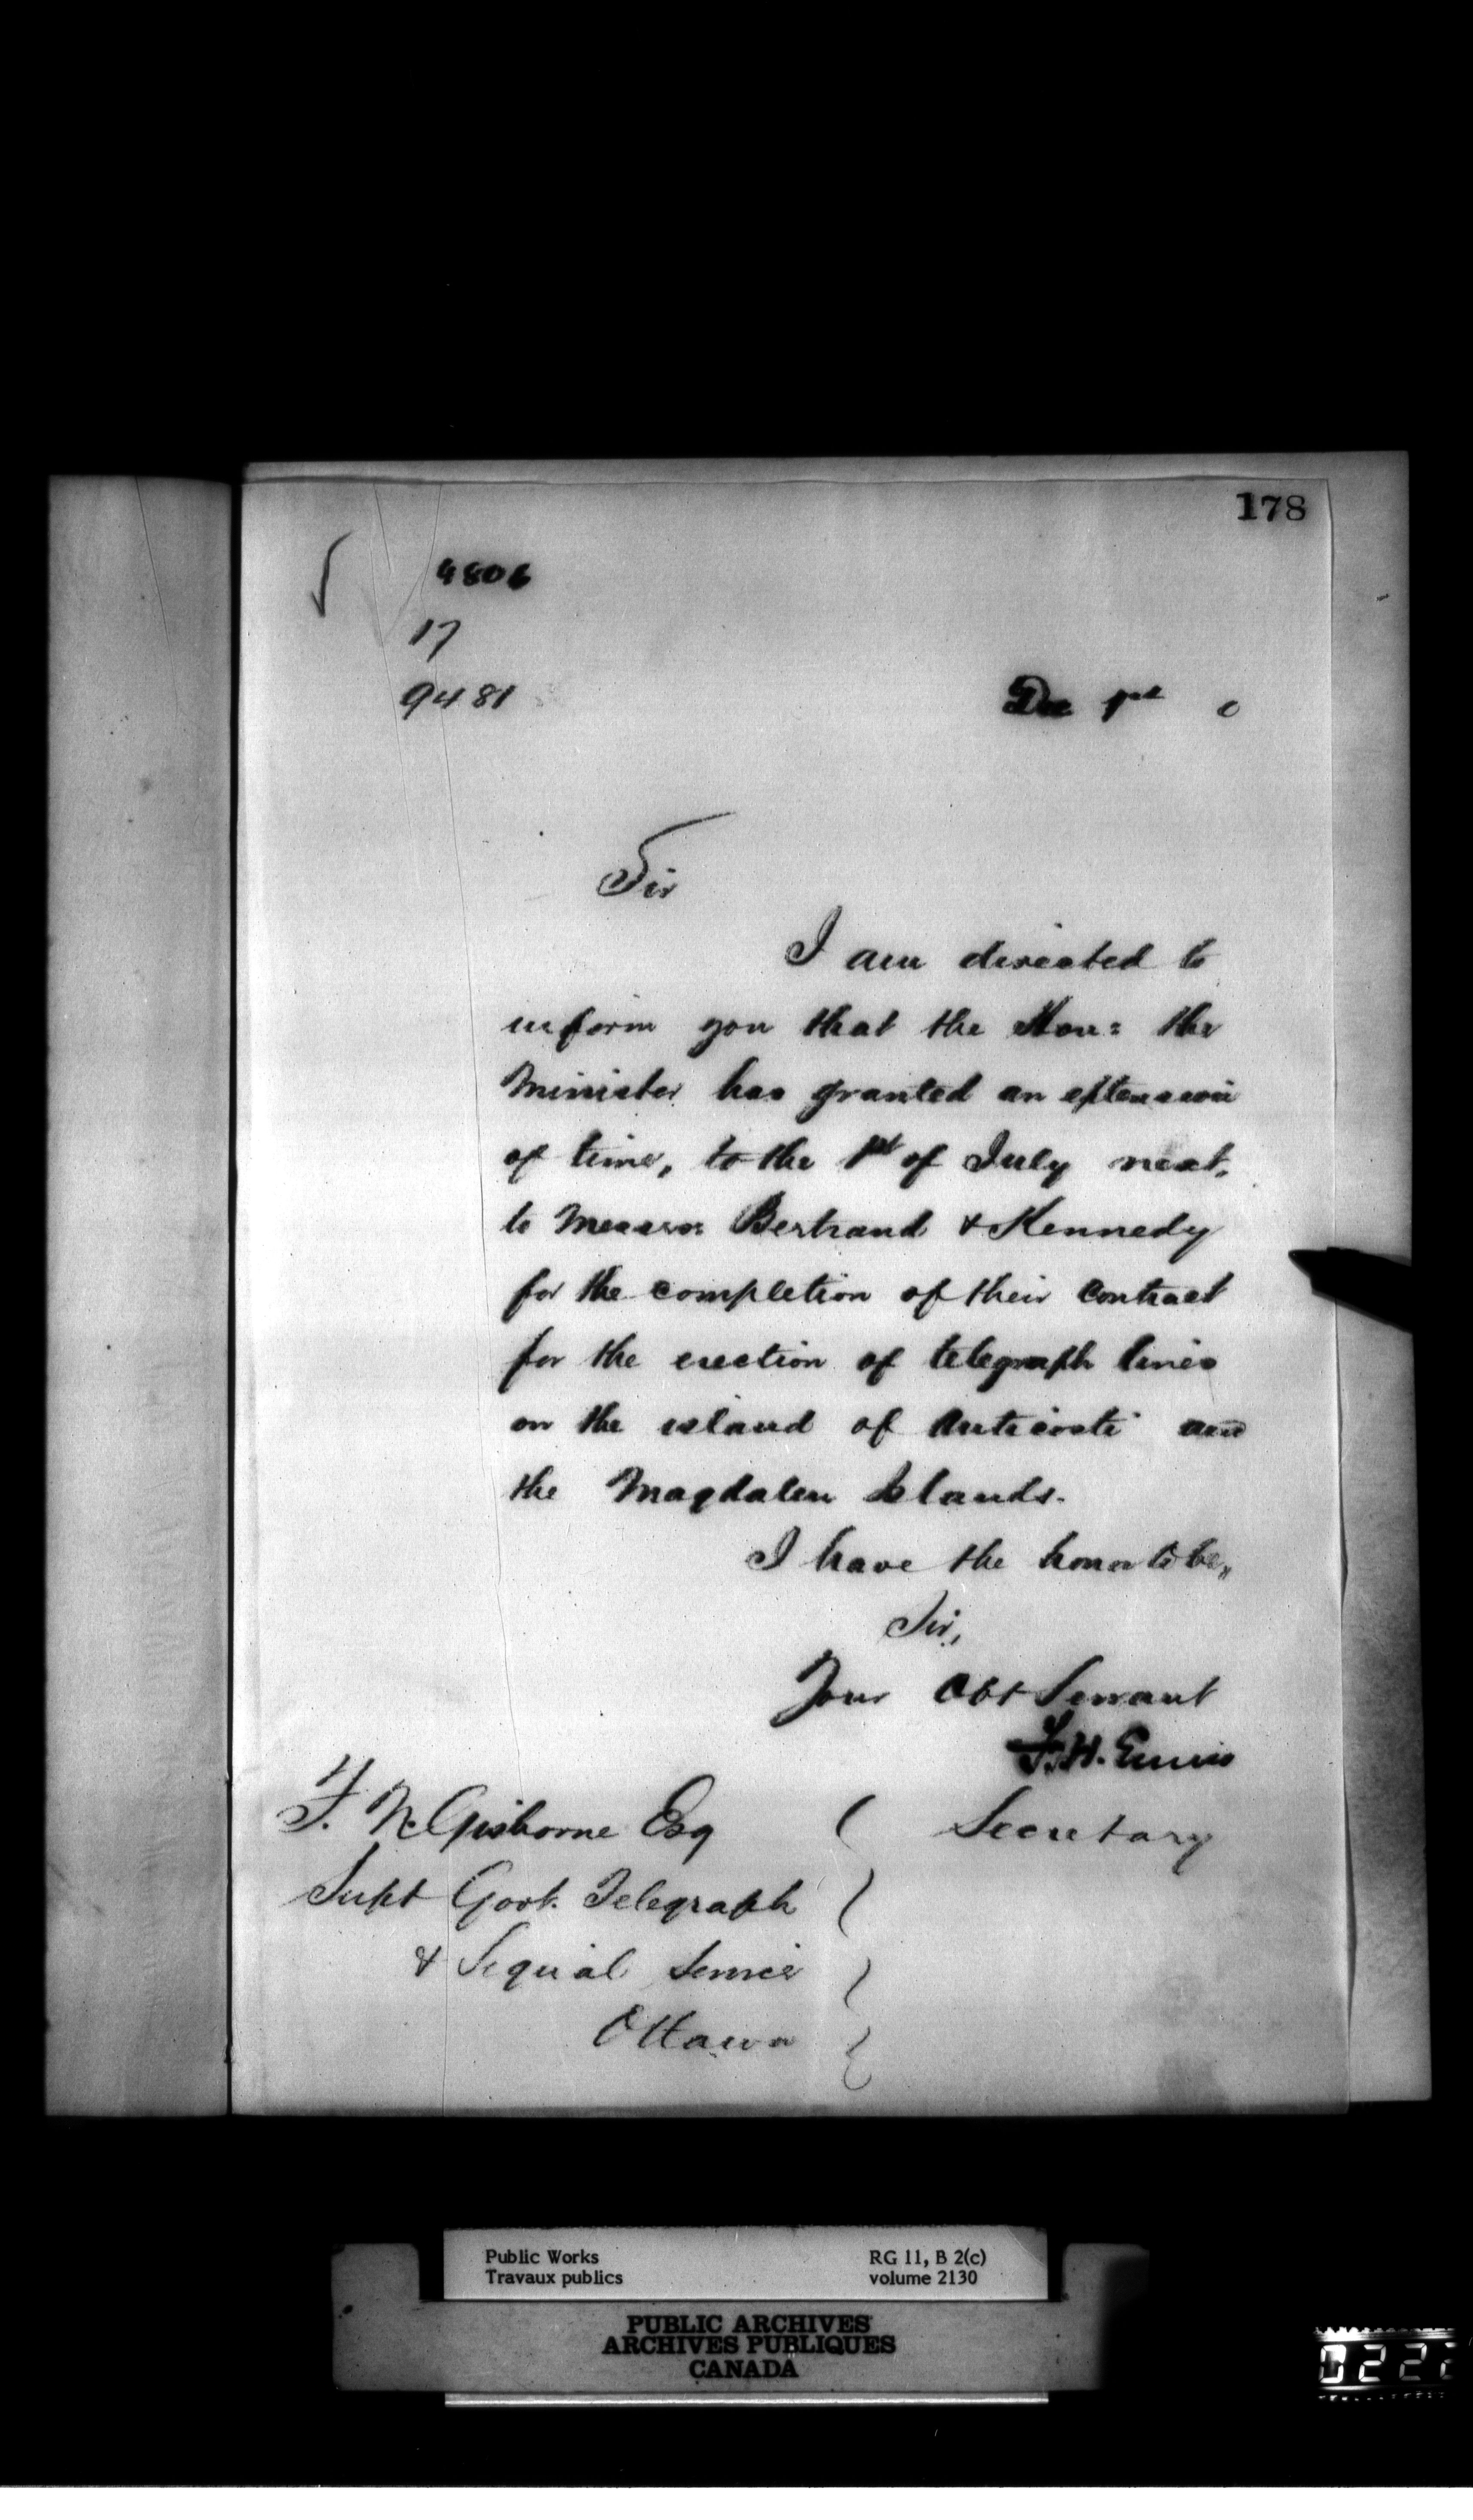 178
4806
17
9481
Dec 1st 0
Sir
I am directed to
inform you that the Hon: the
Minister has granted an extension
of time, to the 1st of July next,
to Messrs Bertrand & Kennedy
for the completion of their contract
for the erection of telegraph lines
on the island of Anticosti and
the Magdalen Islands.
I have the honor to be,
Sir,
Your Obt Servant
F. H. Ennis
Secretary
F. N. Gisborne Esq
Supt Govt. Telegraph
& Signal Service
Ottawa
Public Works
Travaux publics
RG 11, B 2(c)
volume 2130
PUBLIC ARCHIVES
ARCHIVES PUBLIQUES
CANADA